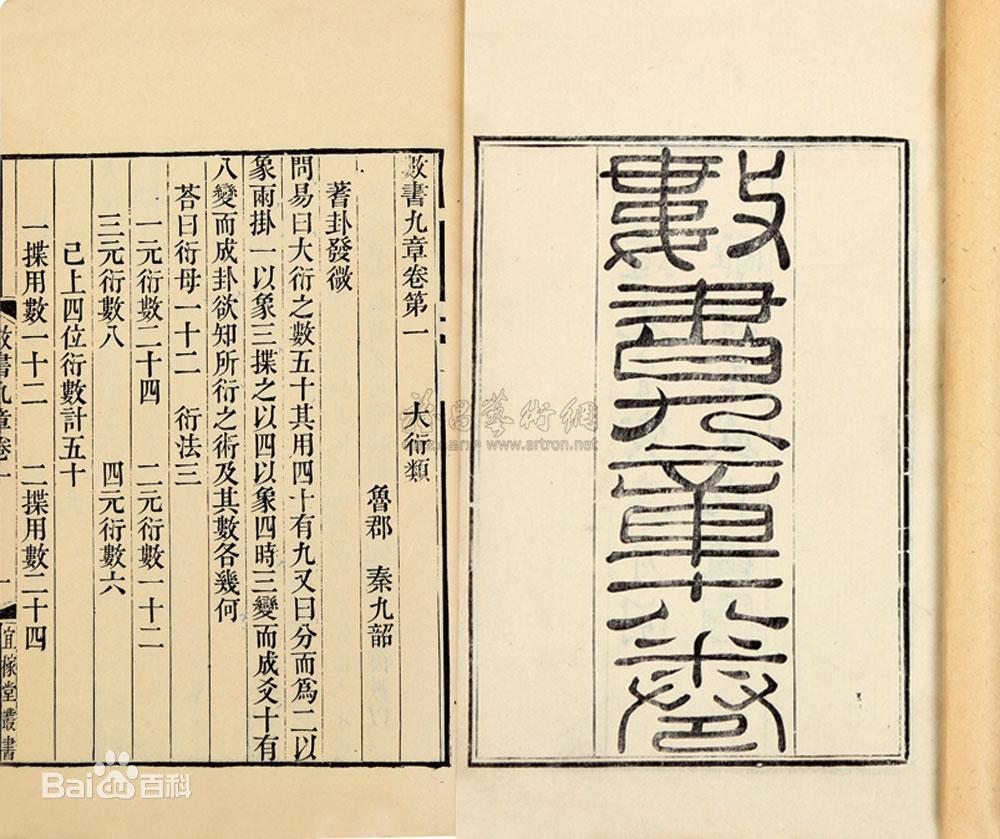 數書九章十八卷
數書九章卷第一　大衍類
魯郡　秦九韶
蓍卦發微
問易曰大衍之數五十其用四十有九又曰分而爲二以
象兩掛一以象三揲之以四以象四時三變而成爻十有
八變而成卦欲知所衍之術及其數各幾何
荅曰衍母一十二　衍法三
一元衍數二十四　二元衍數一十二
三元衍數八　四元衍數六
已上四位衍數計五十
一揲用數一十二　二揲用數二十四
數書九章卷一　一　宜稼堂叢書
雅昌藝術網
www.artron.net
Bai百科